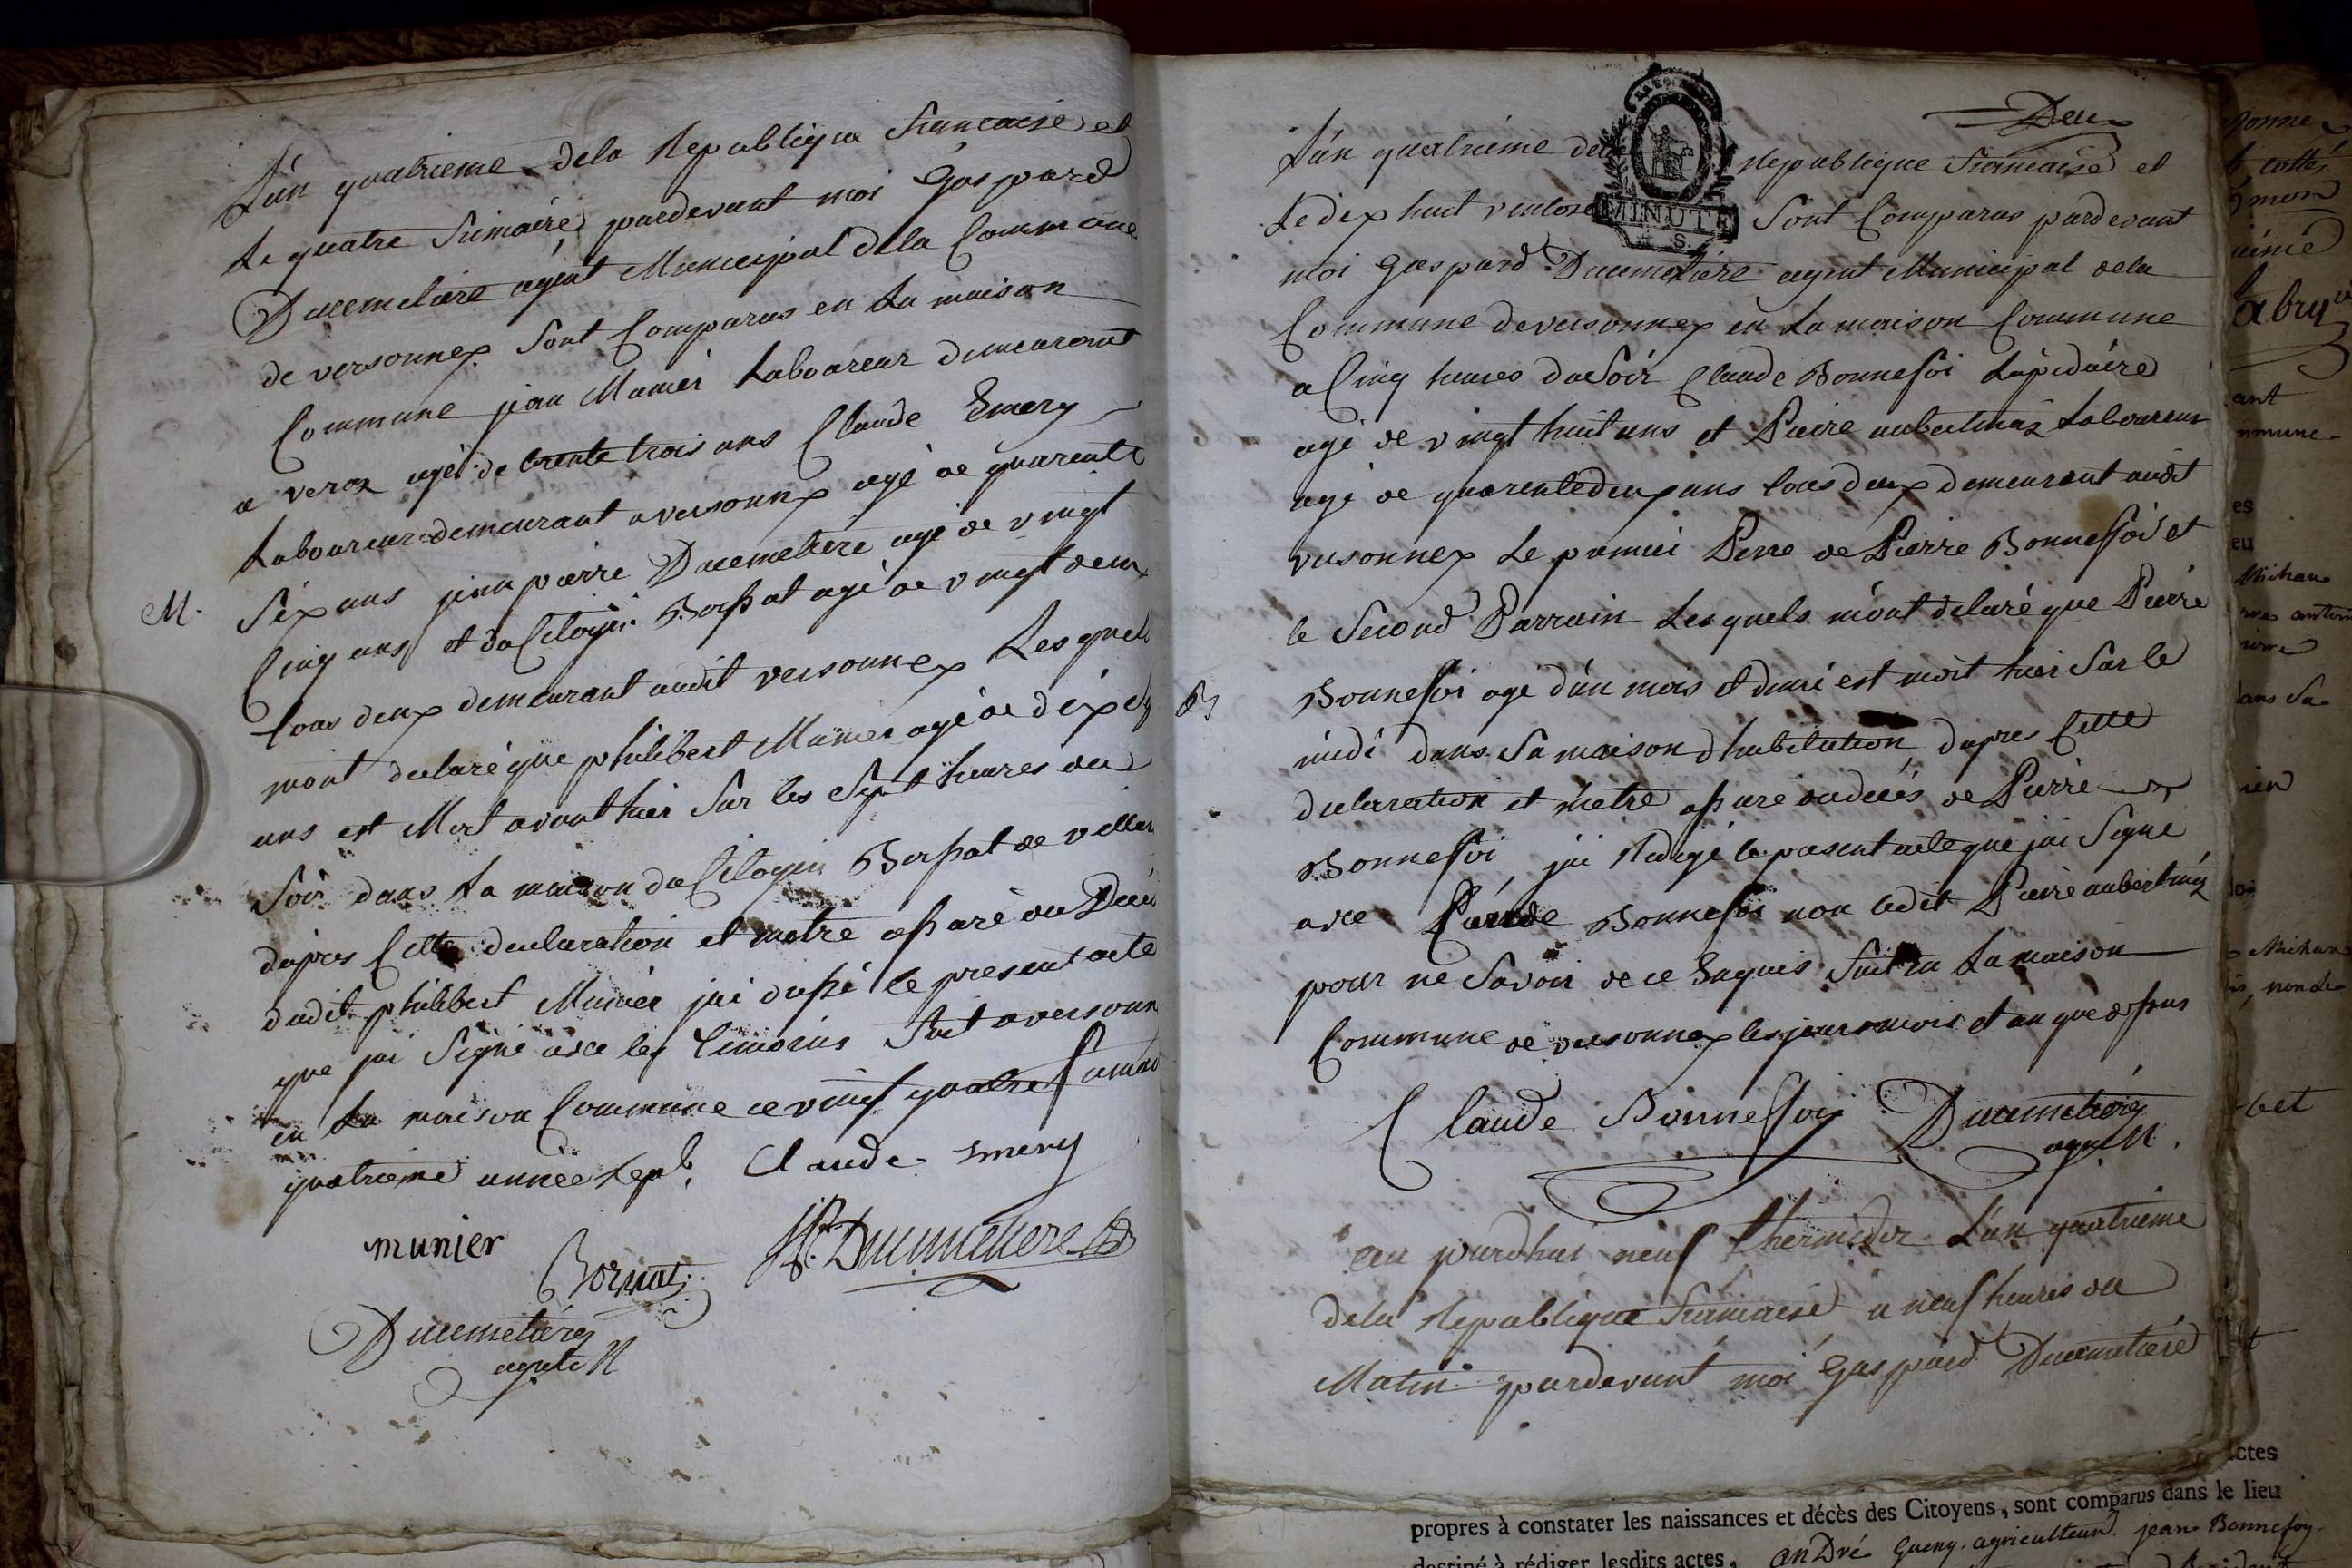 L'an quatrieme dela Republique francaise et
Le quatre frimaire pardevant moi Gaspard
Ducemetiere agent Municipal dela Commune
de versonnex sont Comparus en La maison
Commune jean Munier Laboureur demeurant
a veraz agé de trente trois ans Claude Emery
Laboureur demeurant a versonnex agé de quarente
M.
Six ans jean pierre Ducemetiere agé de vingt
Cinq ans et du Citoyen agé de vingt deux
tous deux demeurant audit versonnex Lesquels
mont declaré que philibert Munier agé de dix
ans est Mort avant hier Sur les Sept heures du
Soir dans La maison du Citoyen de
dapres Cette declaration et metre assuré du Décés
dudit philibert Munier jai dressé le present acte
que jai Signé avec les temoins fait a versonn
en La maison Commune ce vingt quatre frimai
quatrieme année Repb. Claude Emery
munier
Bornat
JP. Ducimetiere
Ducemetiere
agent M
Deux
L'an quatrieme dela Republique francaise et
Le dix huit ventose Sont Comparus pardevant
MINUTE
S.
moi Gaspard Ducemetiere agent Municipal dela
Commune de versonnex en La maison Commune
a Cinq heures du Soir Claude Bonnefoi Lapidaire
agé de vingt huit ans et Pierre aubertinaz Laboureur
agé de quarente deux ans tous deux demeurant audit
versonnex Le premier Pere de Pierre Bonnefoi et
le Second Parrain Lesquels m'ont delaré que Pierre
Bonnefoi agé d'un mois et demi est mort hier Sur le
midi dans Sa maison d'habitation dapres Cette
declaration et m'etre assuré du decés de Pierre
Bonnefoi jai Redigé le present acte que jai Signe
avec Claude Bonnefoi non ledit Pierre aubertinaz
pour ne Savoir de ce Enquis fait en La maison
Commune de versonnex les jours mois et an que dessus
Claude Bonnefoy Ducemetiere
agent M.
au jourdhui neuf thermidor L'an quatrieme
dela Republique francaise a neuf heures du
Matin pardevant moi Gaspard Ducemetiere
ant
es
eu
Michau
bet
ctes
propres à constater les naissances et décès des Citoyens, sont comparus dans le lieu
destiné à rédiger lesdits actes, anDré agriculteur jean Bonnefoy